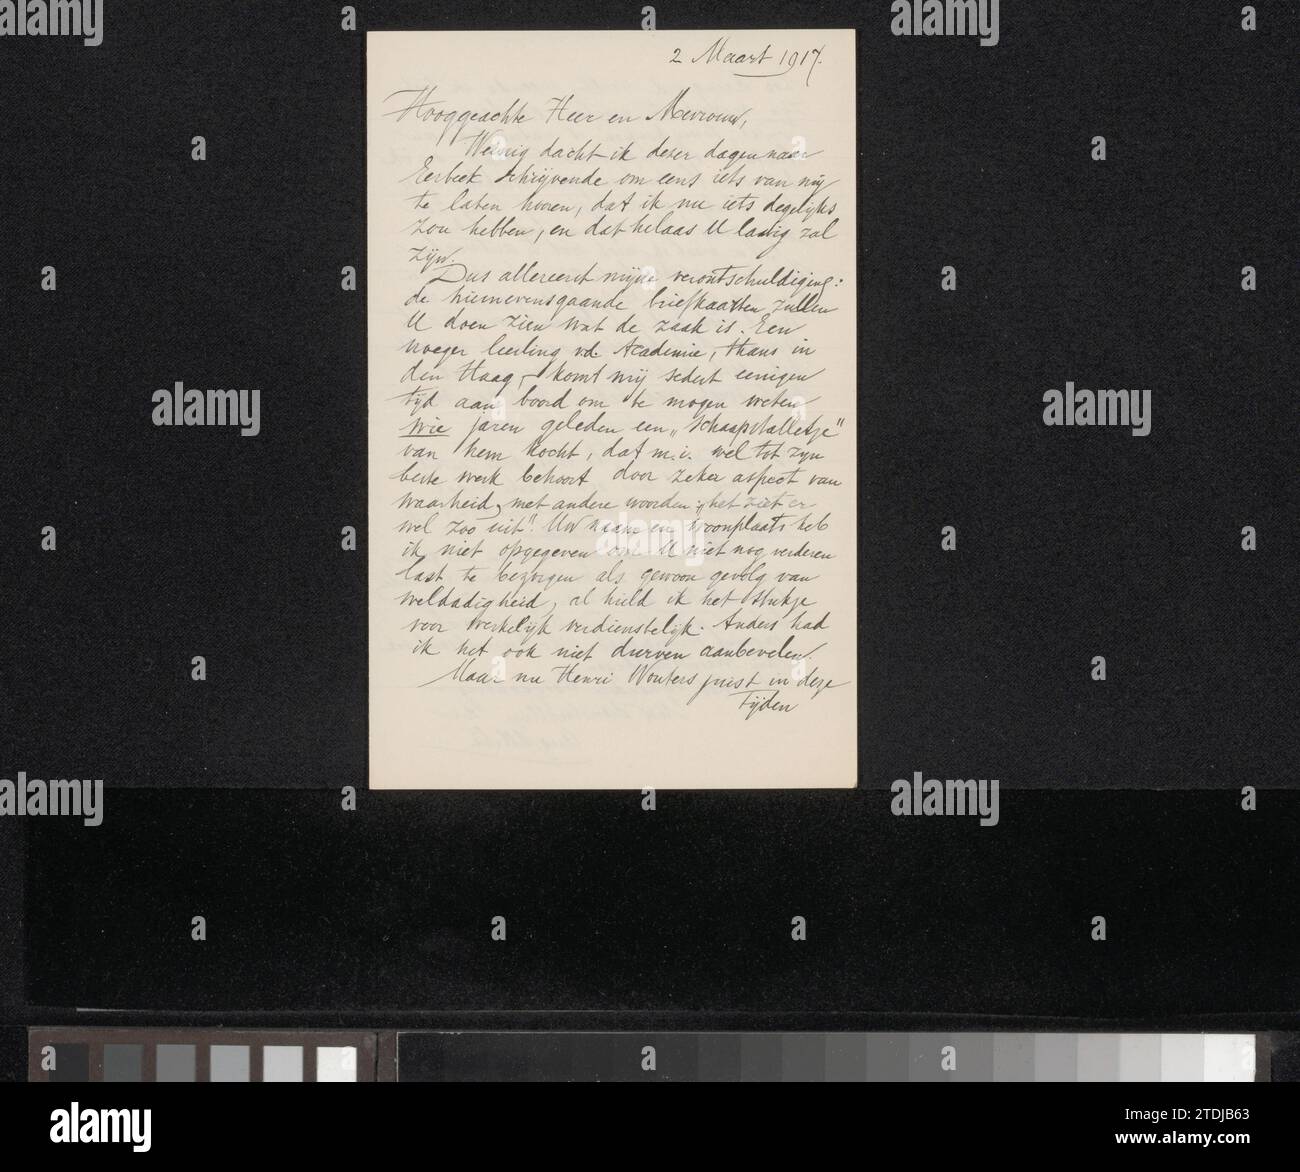 2 Maart 1917.
Hooggeachte Heer en Mevrouw,
Weinig dacht ik dezer dagen naar
Eerbeek schrijvende om eens iets van mij
te laten hooren, dat ik nu iets degelijks
zou hebben, en dat helaas U lastig zal
zijn.
Dus allereerst mijne verontschuldiging:
de hiernevensgaande briefkaarten zullen
U doen zien wat de zaak is. Een
vroeger leerling v.d. Academie, thans in
den Haag, - komt mij sedert eenigen
tijd aan boord om te mogen weten
wie jaren geleden een "Schaapstalletje"
van hem kocht, dat m.i. wel tot zijn
beste werk behoort door zeker aspect van
waarheid, met andere woorden: "het ziet er
wel zoo uit". Uw naam en woonplaats heb
ik niet opgegeven om U niet nog verderen
last te bezorgen als gewoon gevolg van
weldadigheid, al hield ik het stukje
voor werkelijk verdienstelijk. Anders had
ik het ook niet durven aanbevelen.
Maar nu Henri Wouters juist in deze
tijden
alamy
Image ID: 2TDJB63
www.alamy.com